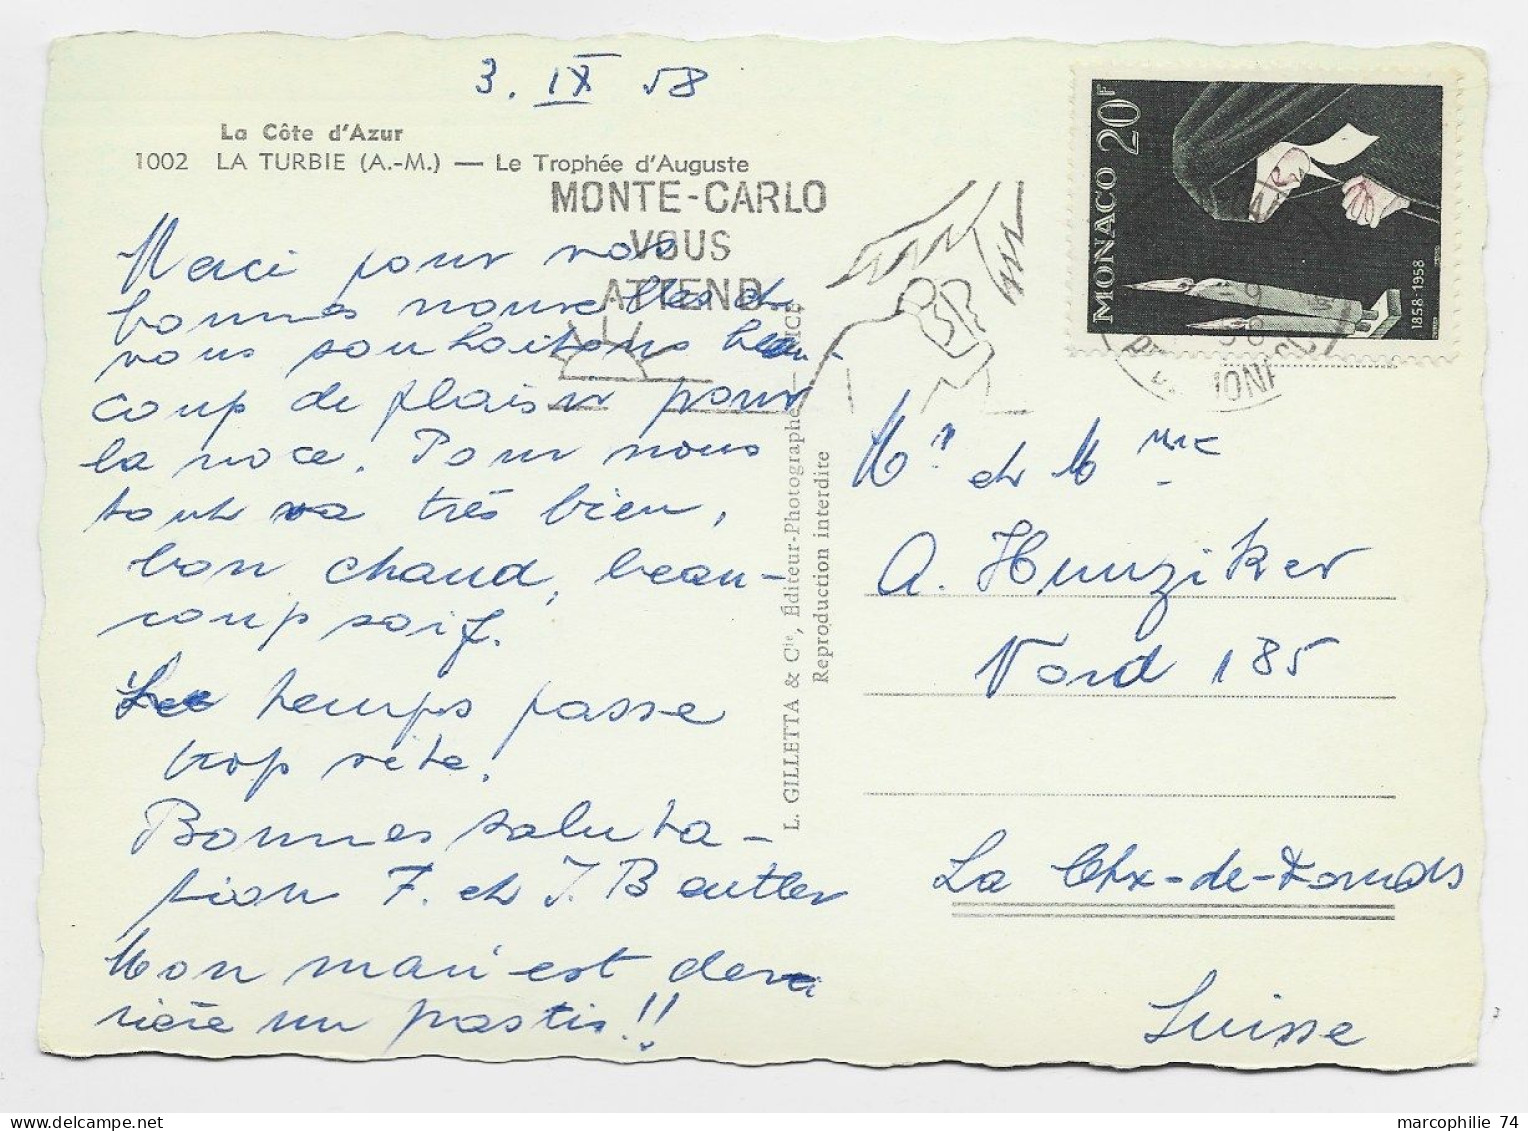 3. IX 58
La Côte d'Azur
1002 LA TURBIE (A.-M.) — Le Trophée d'Auguste
MONTE-CARLO
VOUS
ATTEND
MONACO 20F
1858-1958
Merci pour vos
bonnes nouvelles et
vous souhaitons beau-
coup de plaisir pour
la noce. Pour nous
tout va très bien,
bon chaud, beau-
coup soif.
Le temps passe
trop vite.
Bonnes saluta-
tion F. et J. Beutler
Mon mari est der
rière un pastis!!
L. GILLETTA & Cie, Éditeur-Photographe — NICE
Reproduction interdite
Mr et Mme
A. Hunziker
Nord 185
La Chx-de-Fonds
Suisse
marcophilie 74